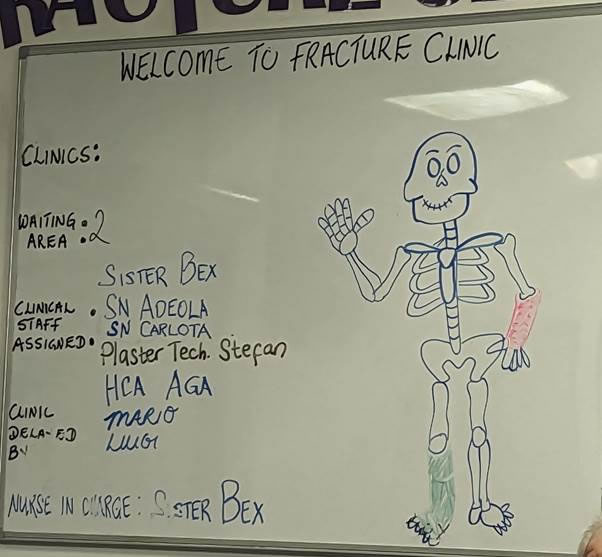 FRACTURE
WELCOME TO FRACTURE CLINIC
CLINICS:
WAITING AREA : 2
SISTER BEX
CLINICAL STAFF ASSIGNED : SN ADEOLA
SN CARLOTA
Plaster Tech. Stefan
HCA AGA
CLINIC DELA-ED BY
MARIO
LUIGI
NURSE IN CHARGE: SISTER BEX